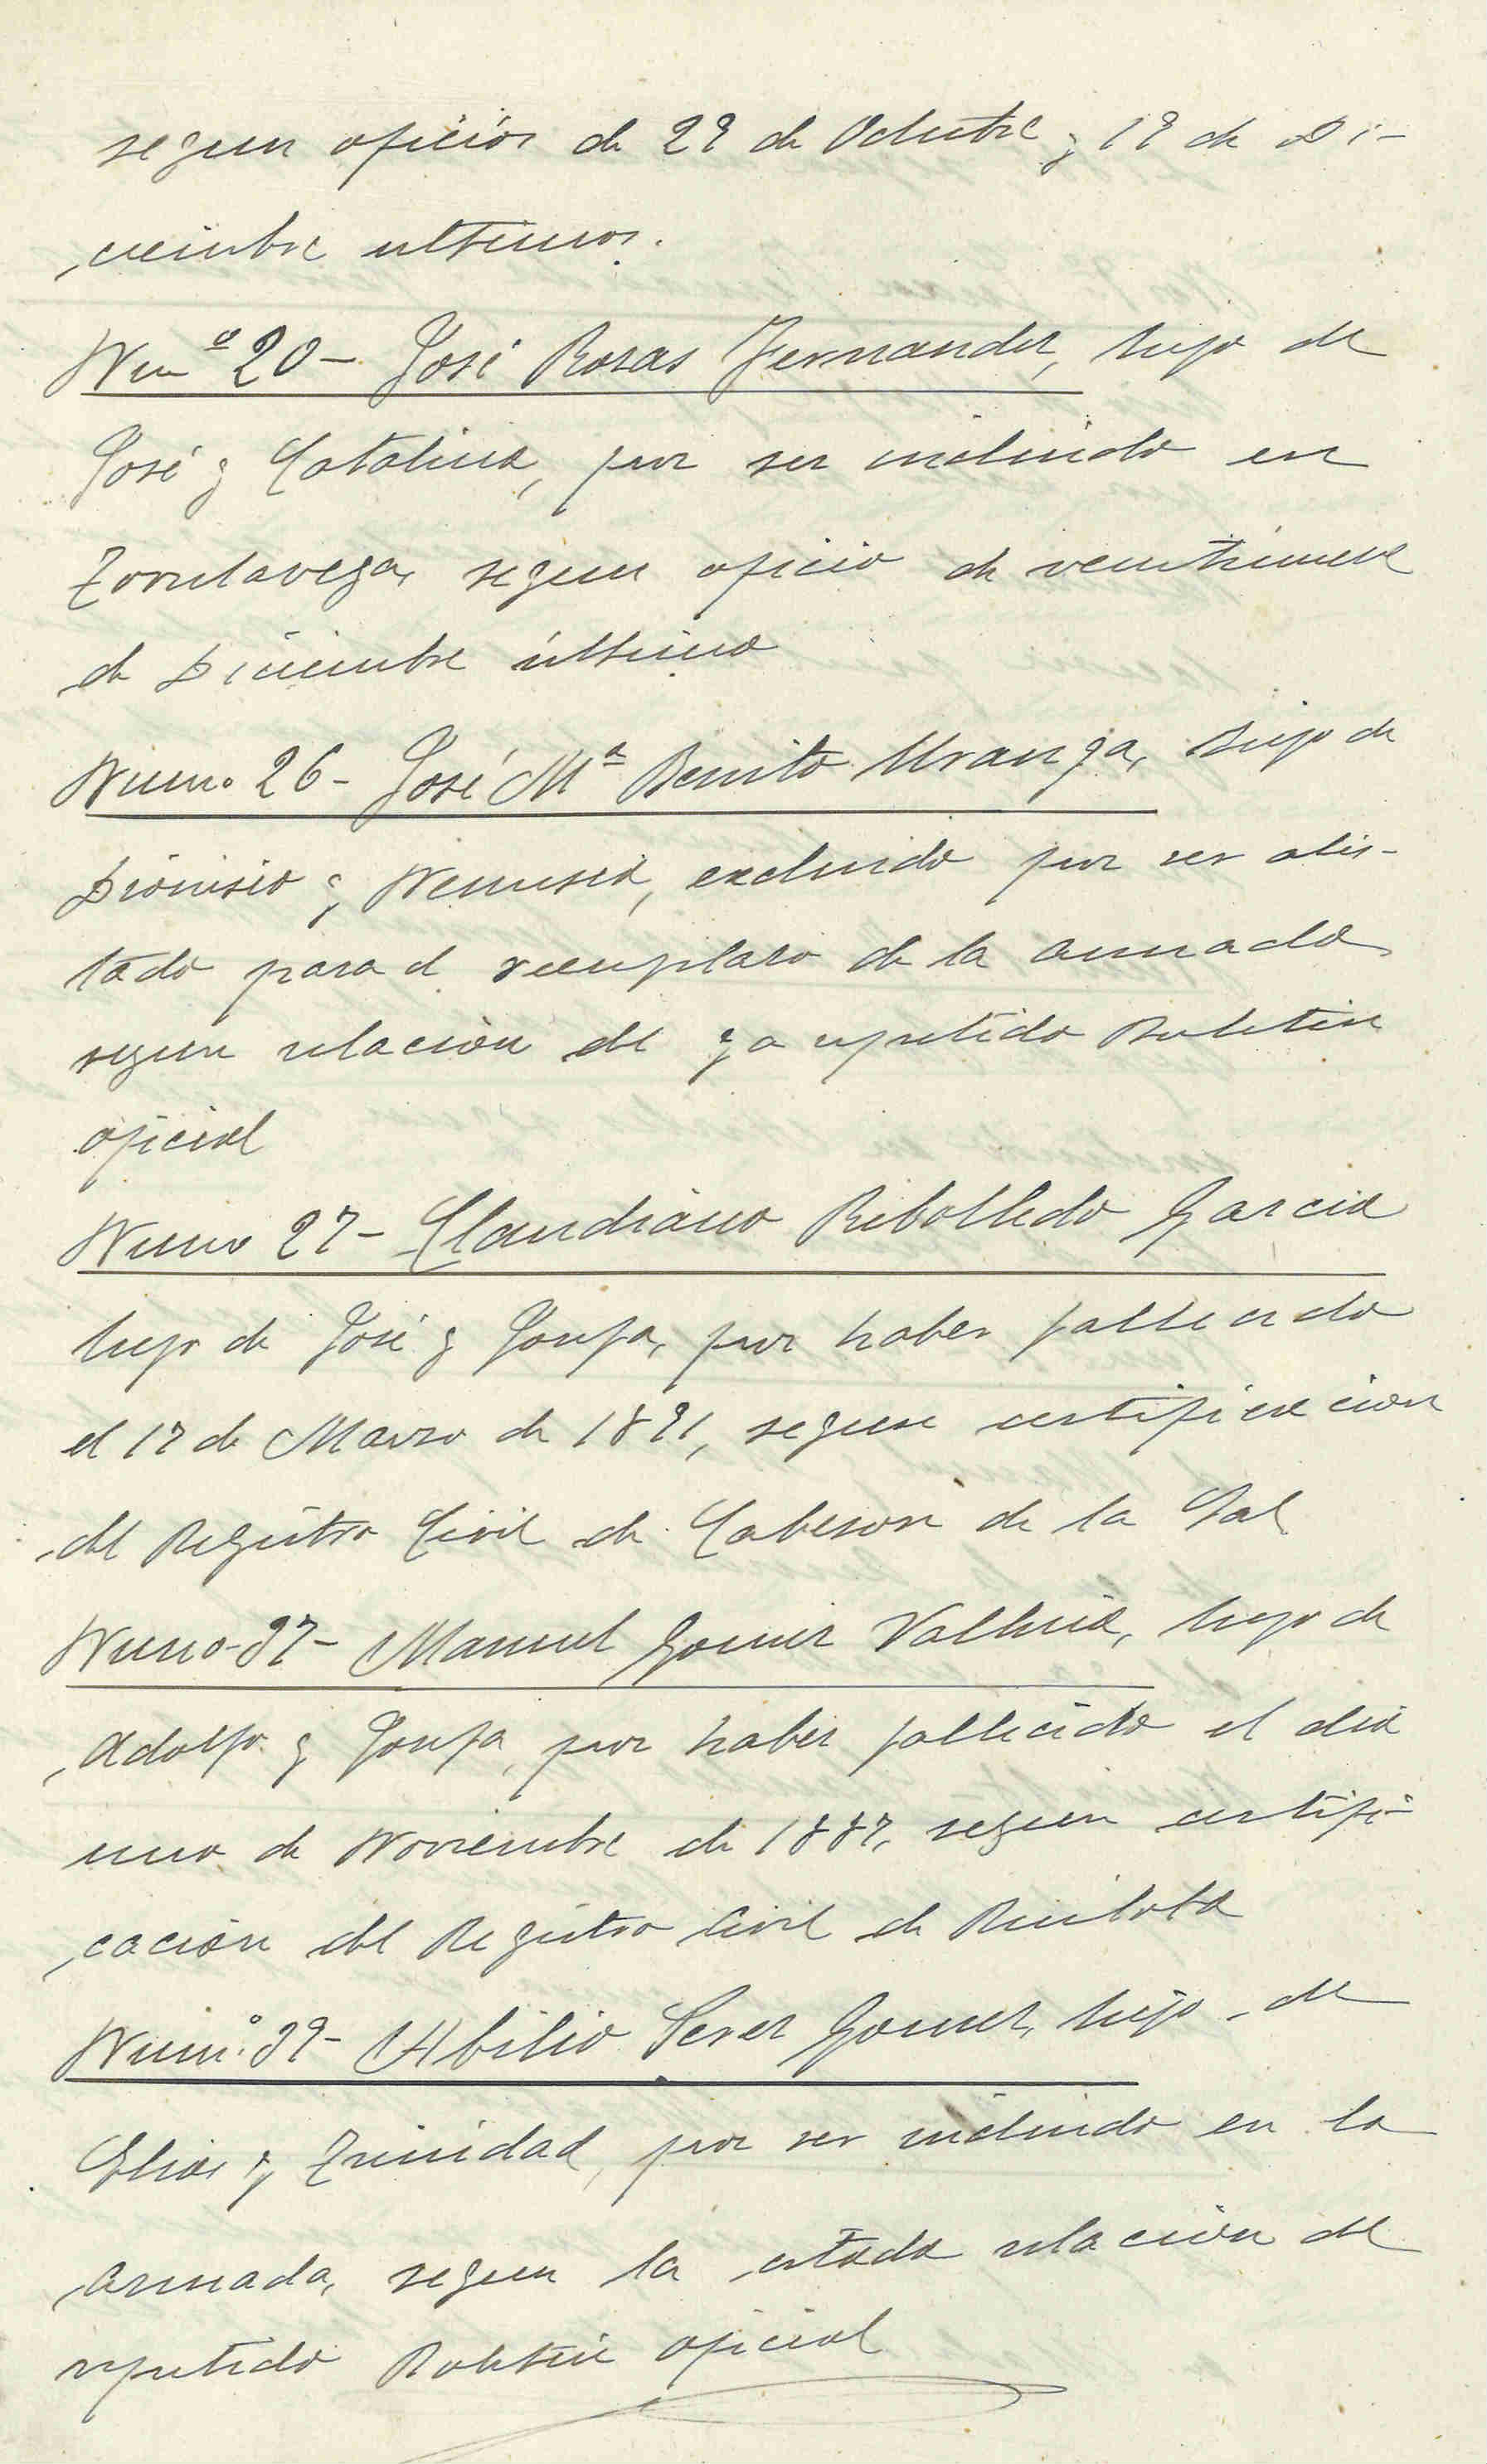 segun oficios de 29 de Octubre y 19 de Di-
ciembre ultimos.
Numº 20 - José Rosas Fernandez, hijo de
José y Catalina, por ser incluido en
Torrelavega, segun oficio de veintinueve
de Diciembre último
Num. 26 - José Mª Benito Uranga, hijo de
Dionisio y Nemesia, excluido por ser alis-
tado para el reemplazo de la armada
segun relación del ya repetido Boletin
oficial
Numo 27 - Claudiano Rebolledo Garcia
hijo de José y Josefa, por haber fallecido
el 17 de Marzo de 1891, segun certificacion
del Registro Civil de Cabezon de la Sal
Numo - 37 - Manuel Gomez Vallina, hijo de
Adolfo y Josefa, por haber fallecido el dia
uno de Noviembre de 1887, segun certifi-
cación del Registro Civil de Ruiloba
Num.º 39 - Abilio Perez Gomez, hijo de
Elias y Trinidad, por ser incluido en la
armada, segun la citada relación del
repetido Boletin oficial